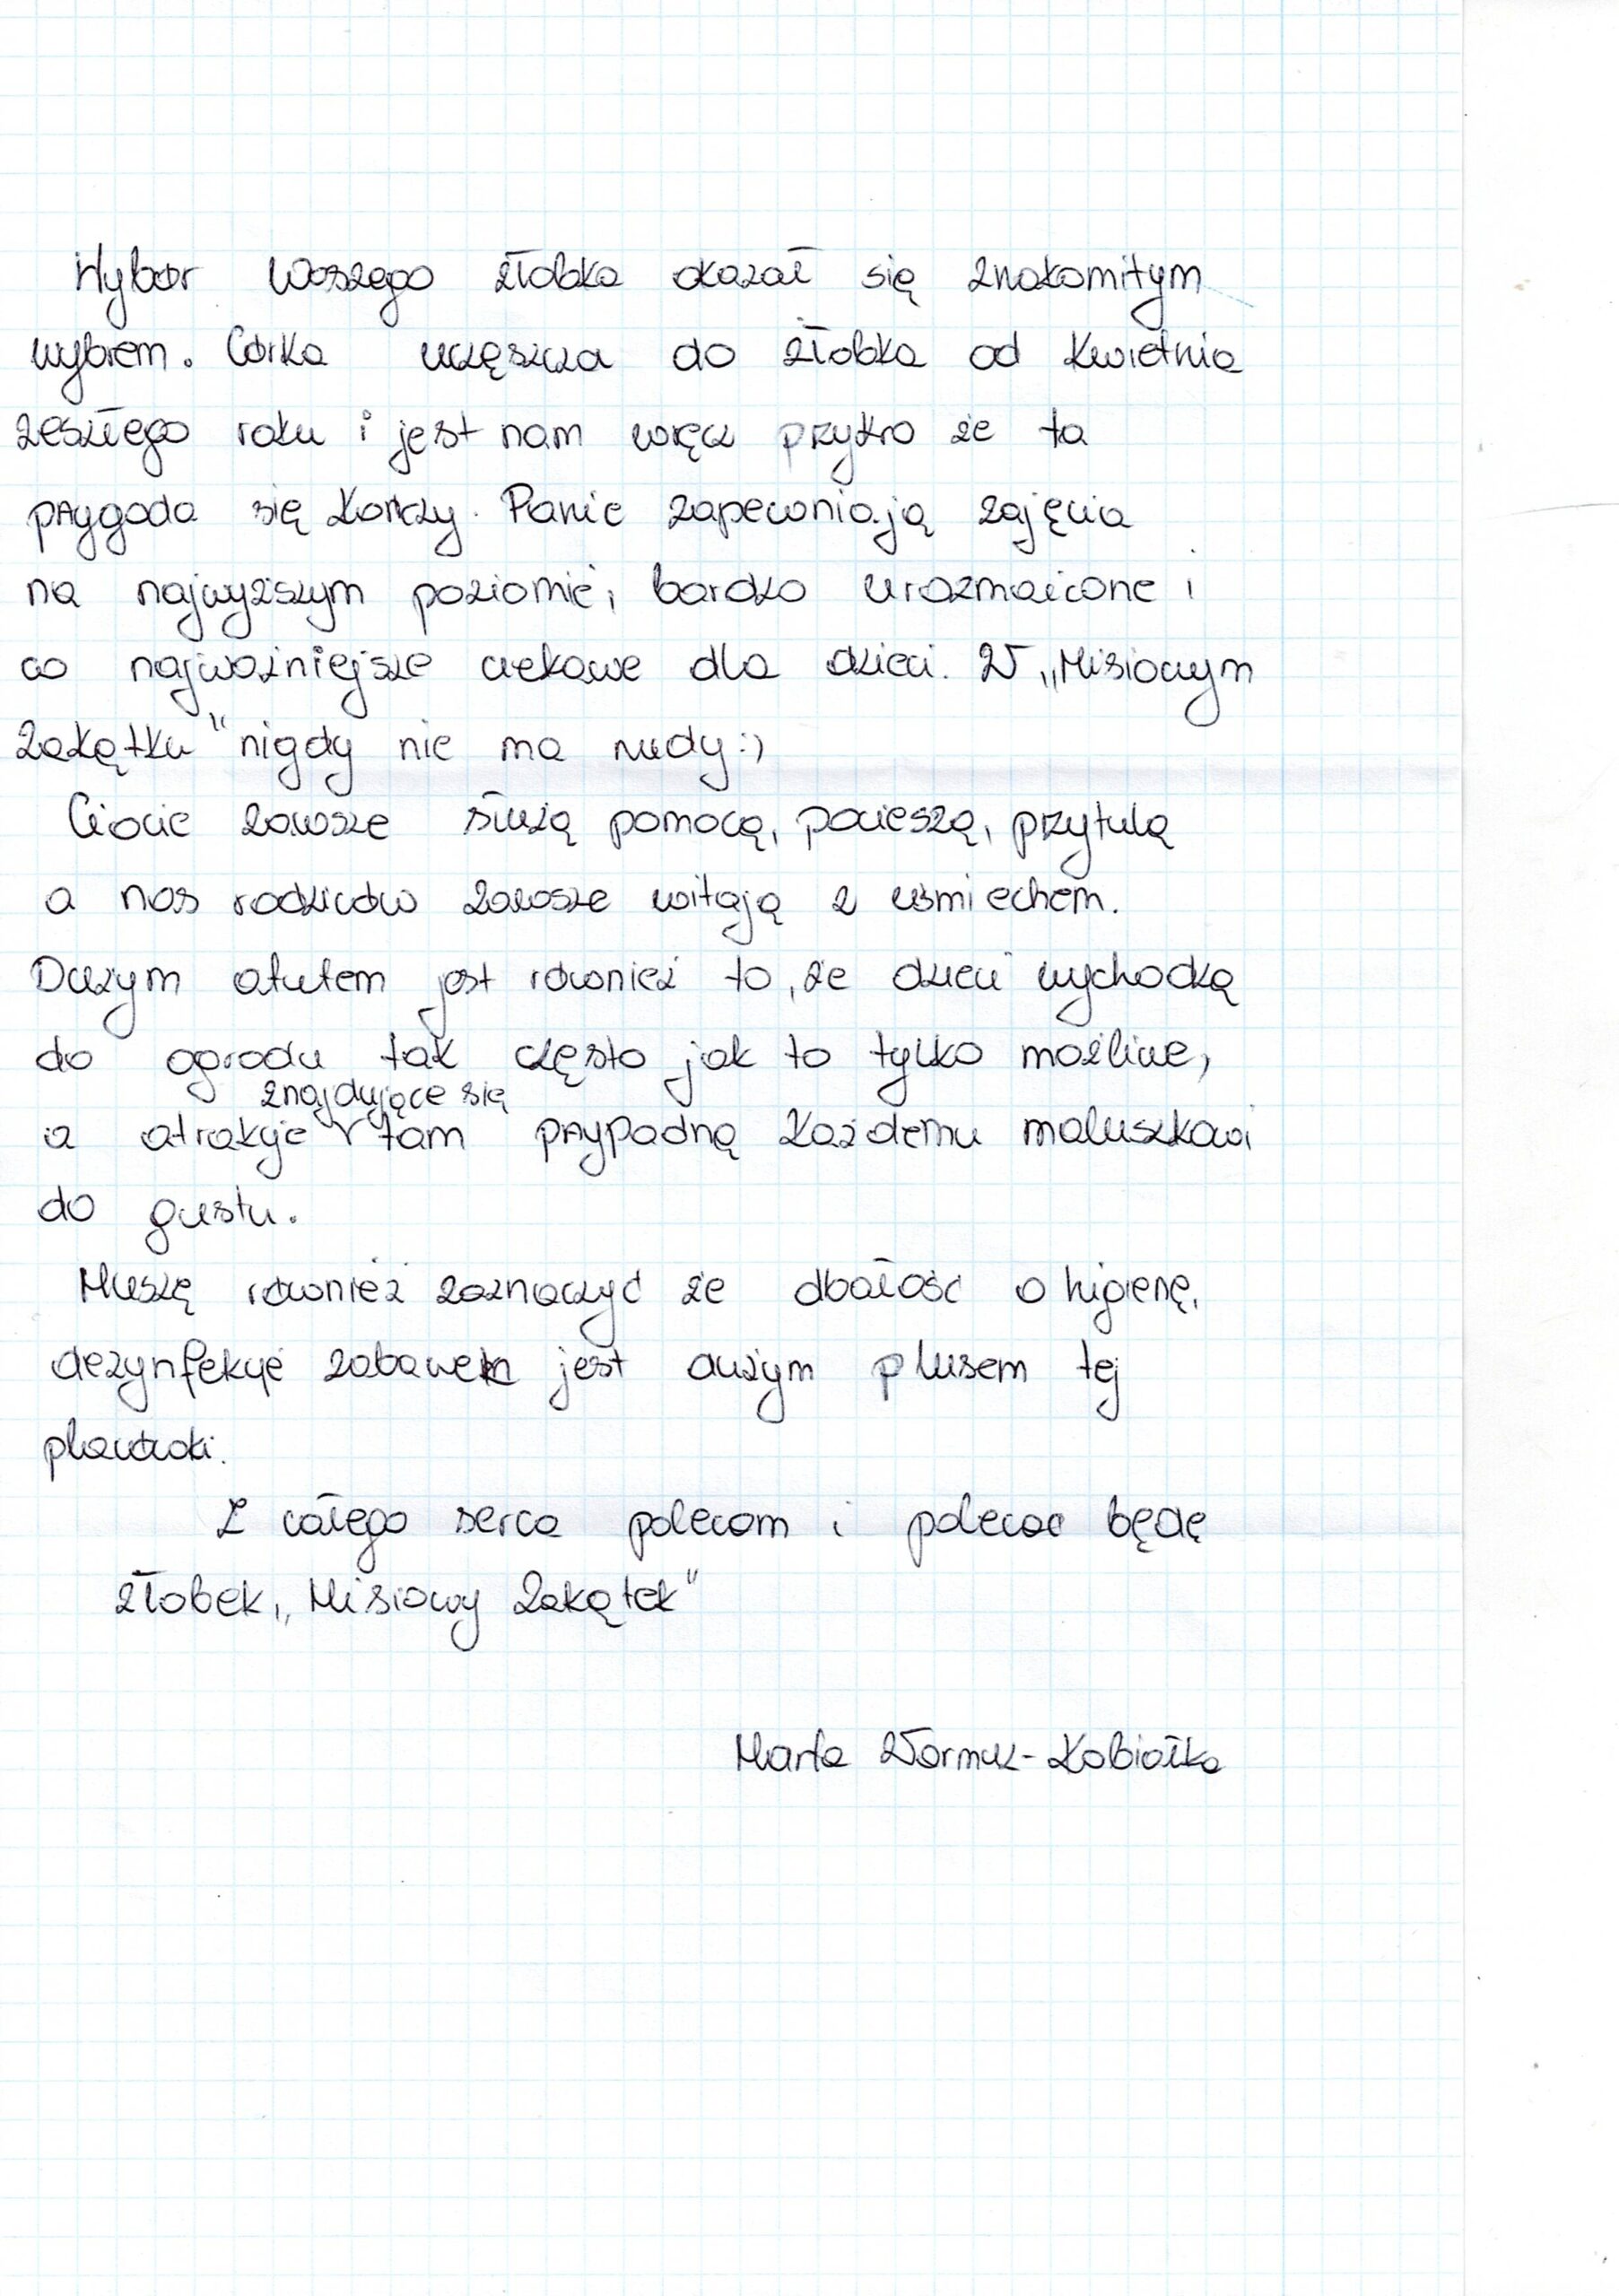 Wybór Waszego żłobka okazał się znakomitym
wybrem. Córka uczęszcza do żłobka od kwietnia
zeszłego roku i jest nam wręcz przykro że ta
przygoda się kończy. Panie zapewniają zajęcia
na najwyższym poziomie, bardzo urozmaicone i
co najważniejsze ciekawe dla dzieci. W „Misiowym
Zakątku" nigdy nie ma nudy :)
Ciocie zawsze służą pomocą, pocieszą, przytulą
a nas rodziców zawsze witają z uśmiechem.
Dużym atutem jest również to, że dzieci wychodzą
do ogrodu tak często jak to tylko możliwe,
a atrakcje znajdujące się tam przypadną każdemu maluszkowi
do gustu.
Muszę również zaznaczyć że dbałość o higienę,
dezynfekcje zabawek jest dużym plusem tej
placówki.
Z całego serca polecam i polecać będę
żłobek „Misiowy Zakątek"
Marta Warmuz-Kobiałka